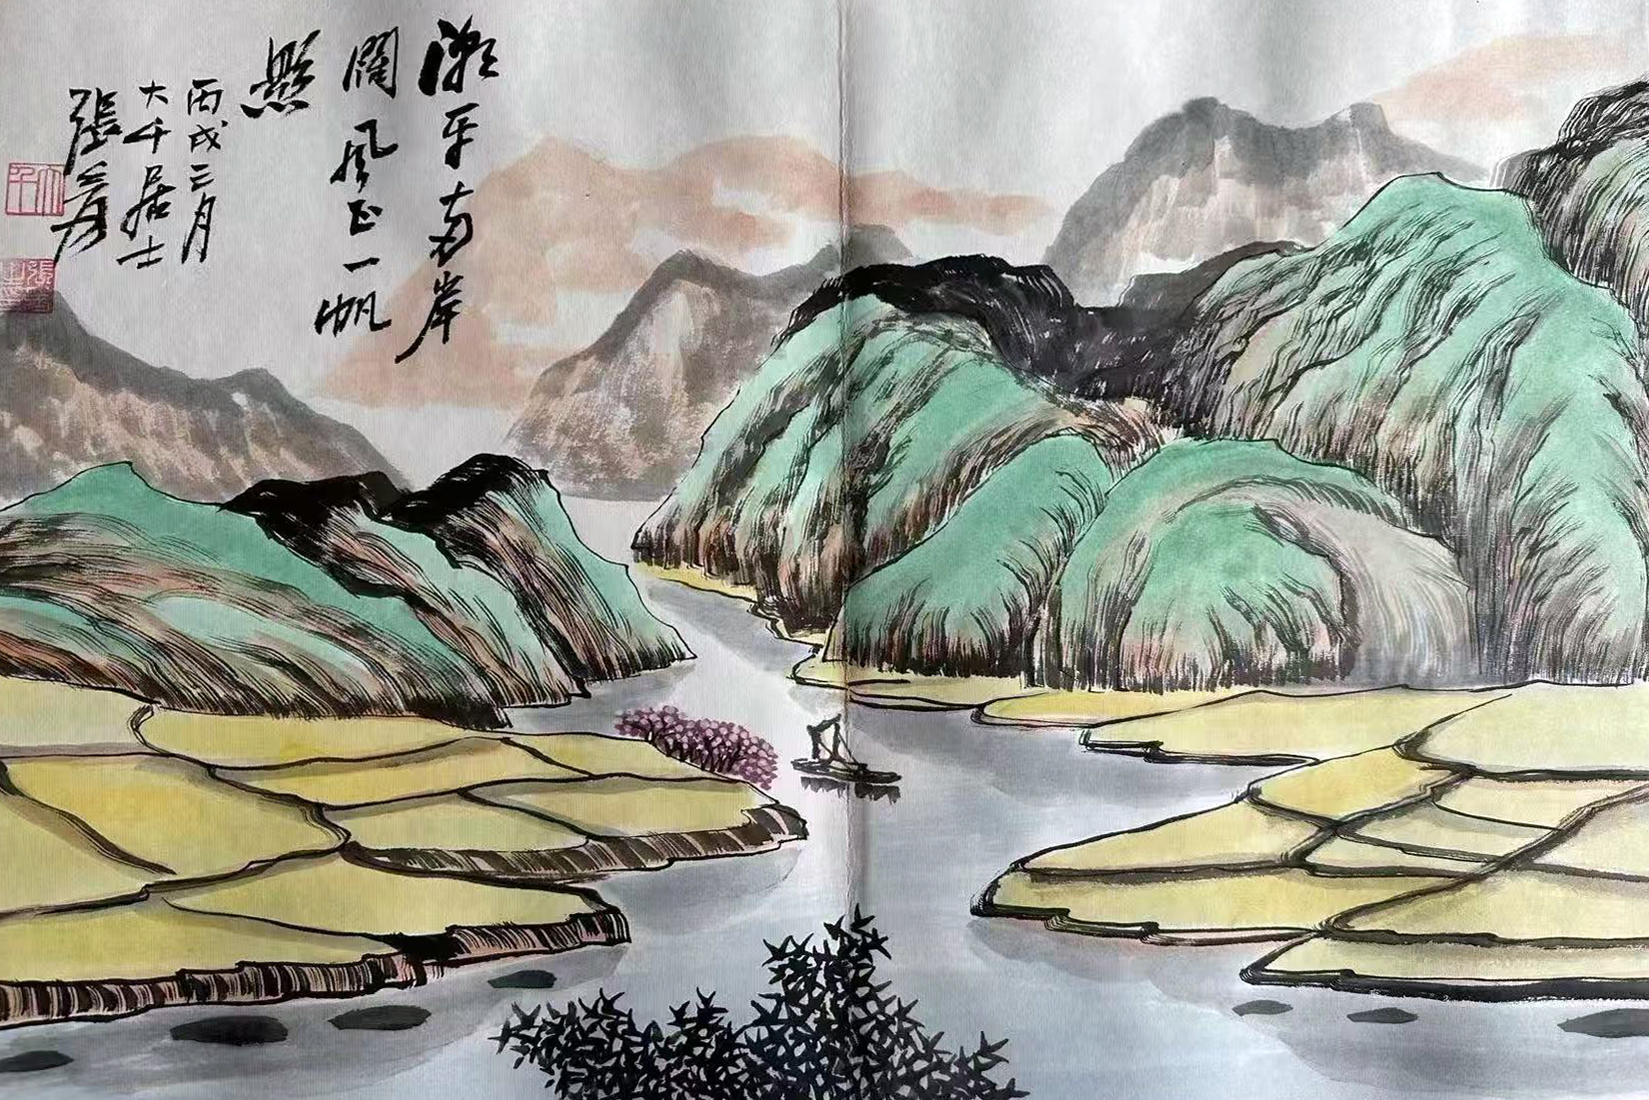 潮平兩岸
闊風正一帆
懸
丙戌三月
大千居士
張爰
大千